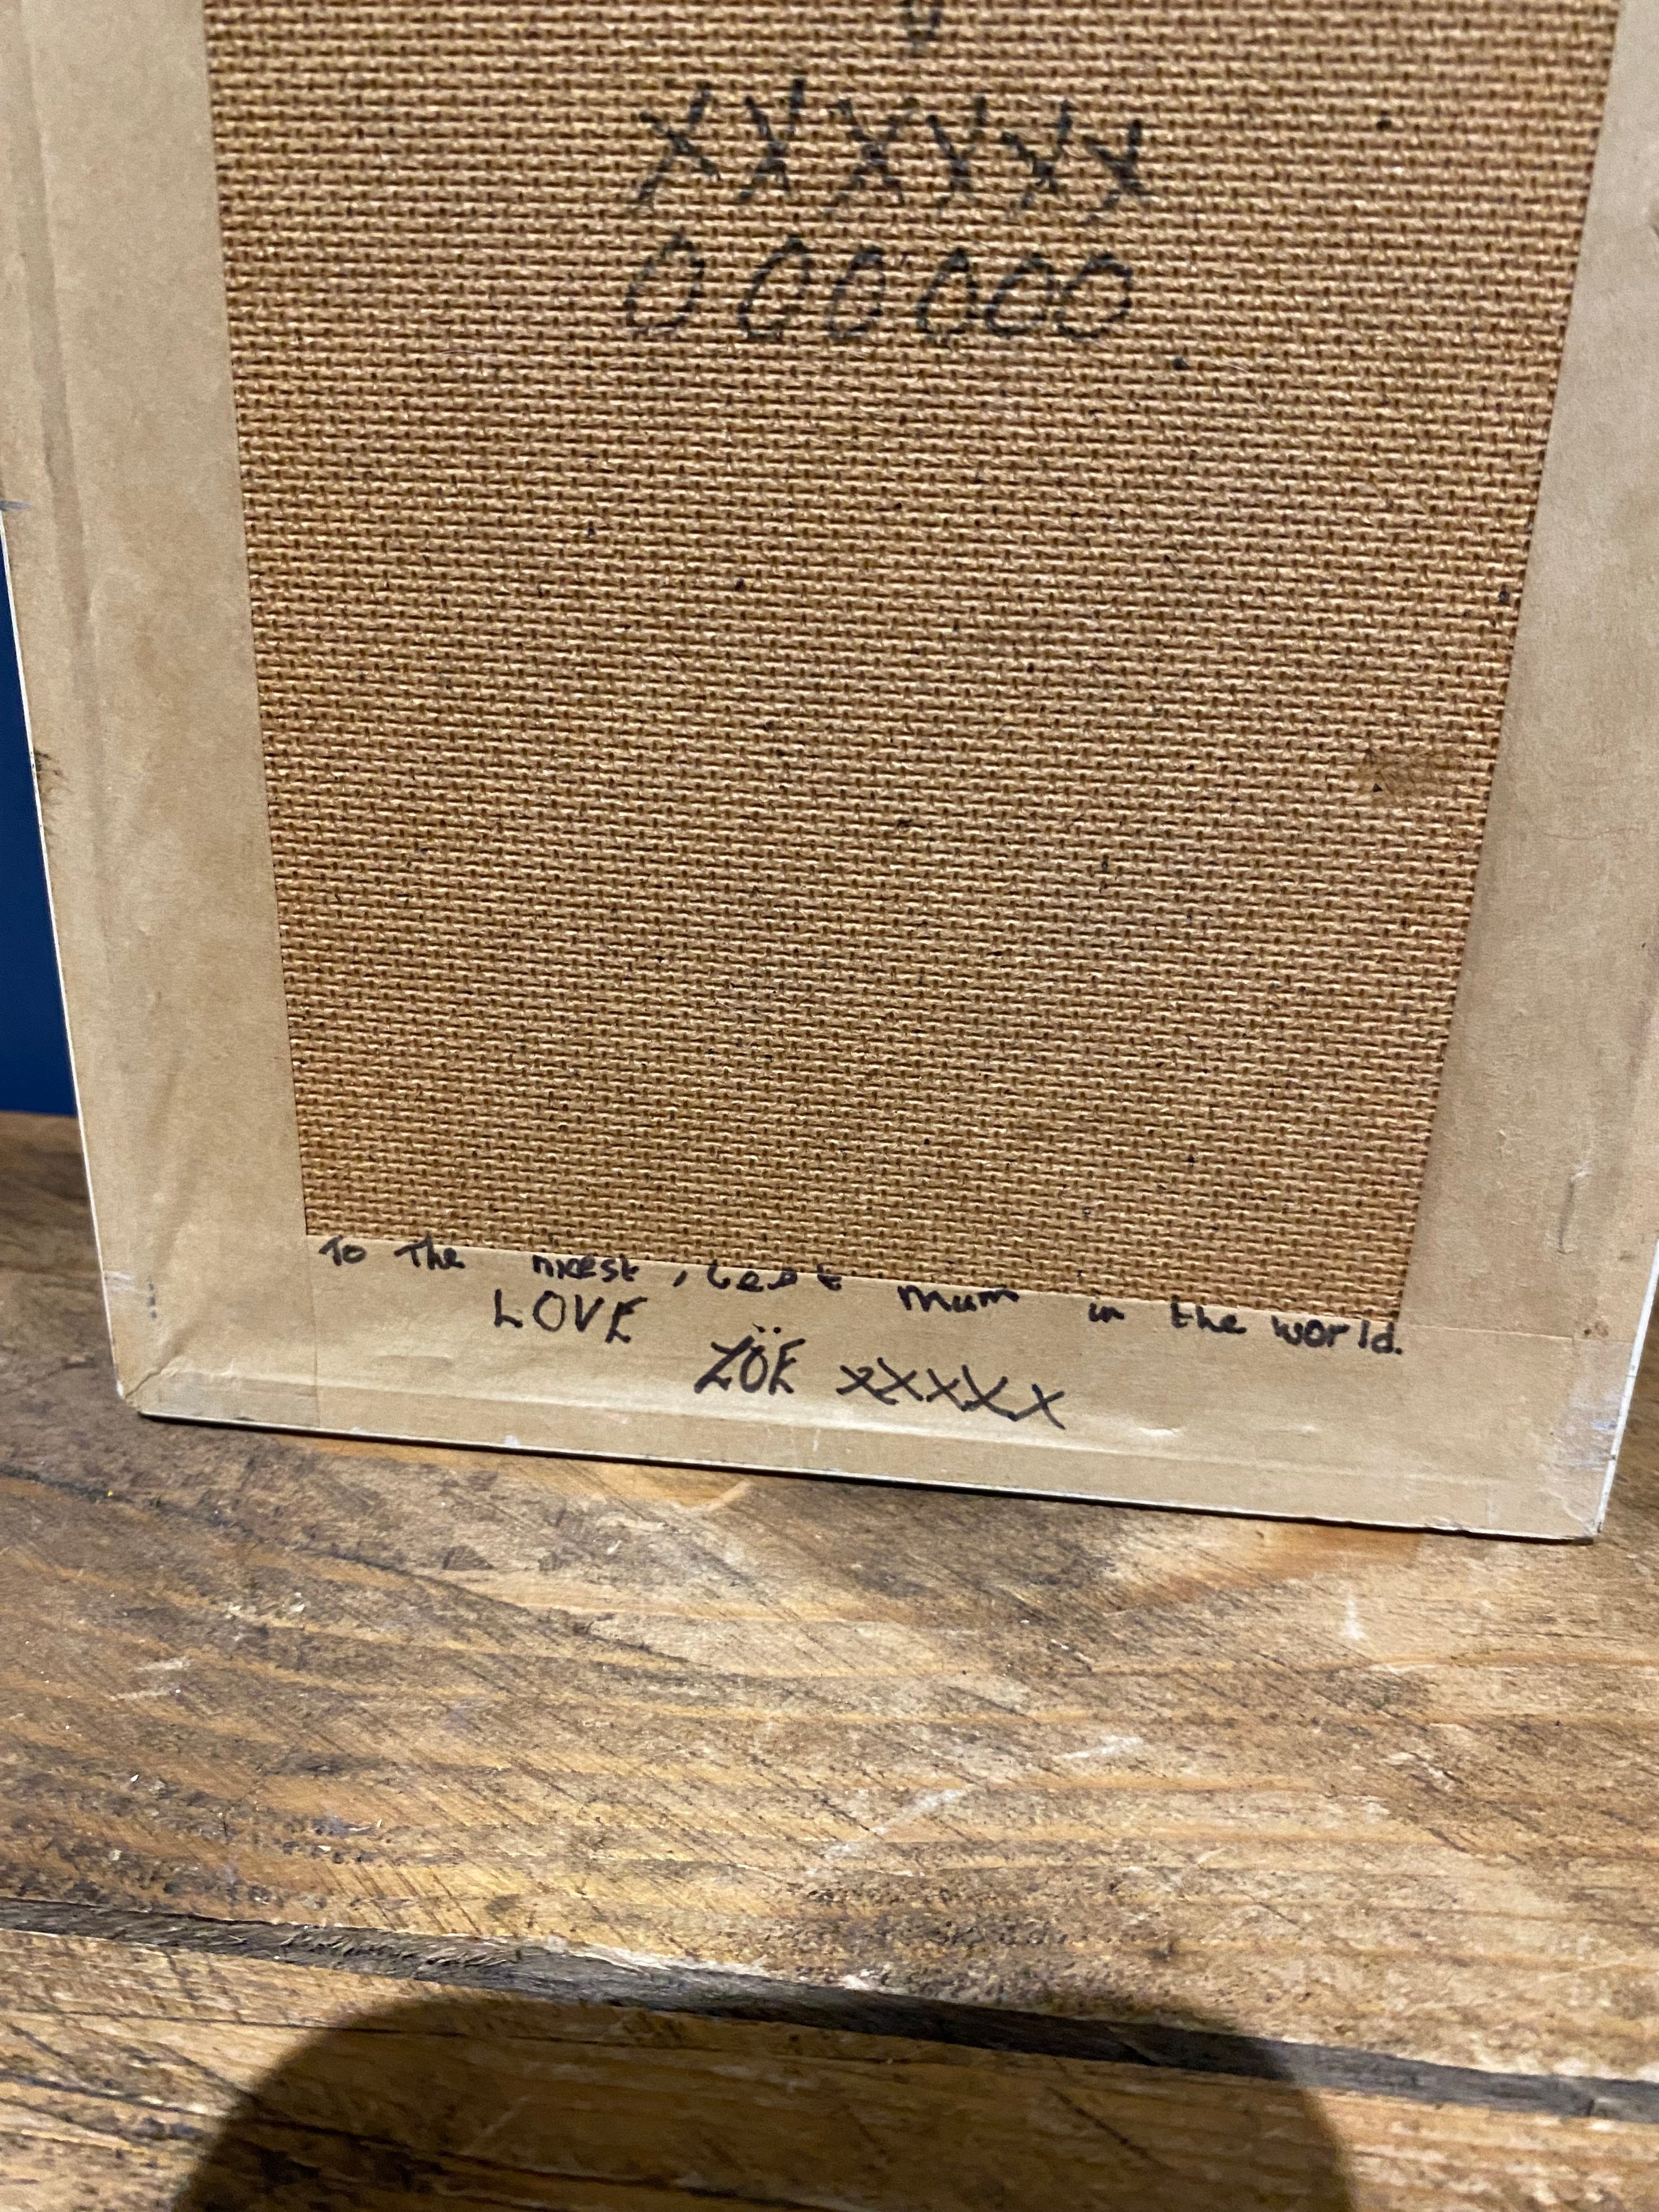 XXXXXX
OOOOOO.
To The nicest, best mum in the world.
LOVE
ZÖE xxxxx